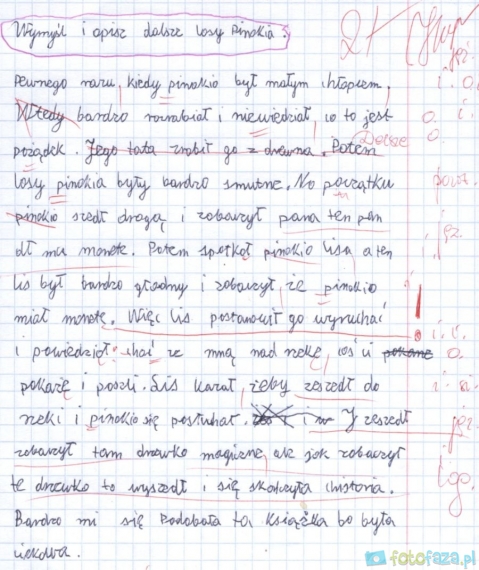 Wymyśl i opisz dalsze losy Pinokia
2+
jęz.
Pewnego razu, kiedy pinokio był małym chłopcem, i. o.
Wtedy bardzo rozrabiał i niewiedział, co to jest o. i.
pożądek. Jego tata zrobił go z drewna. Potem Dalsze o.
losy pinokia były bardzo smutne. Na początku powt.
pinokio szedł drogą i zobaczył pana ten pan jęz.
dł mu monete. Potem spotkał pinokio lisa a ten i.
lis był bardzo głodny i zobaczył, że pinokio
miał monetę. Więc lis postanowił go wyruchać !
i powiedział: chać ze mną nad rzekę, coś ci pokarze o.
pokażę i poszli. Lis kazał, żeby zeszedł do
rzeki i pinokio się posłuchał. i w J zeszedł jęz.
zobaczył tam drzewko magiczne, ale jak zobaczył
te drzewko to wyszedł i się skończyła chistoria. log.
Bardzo mi się podobała ta książka bo była
ciekawa.
fotofaza.pl